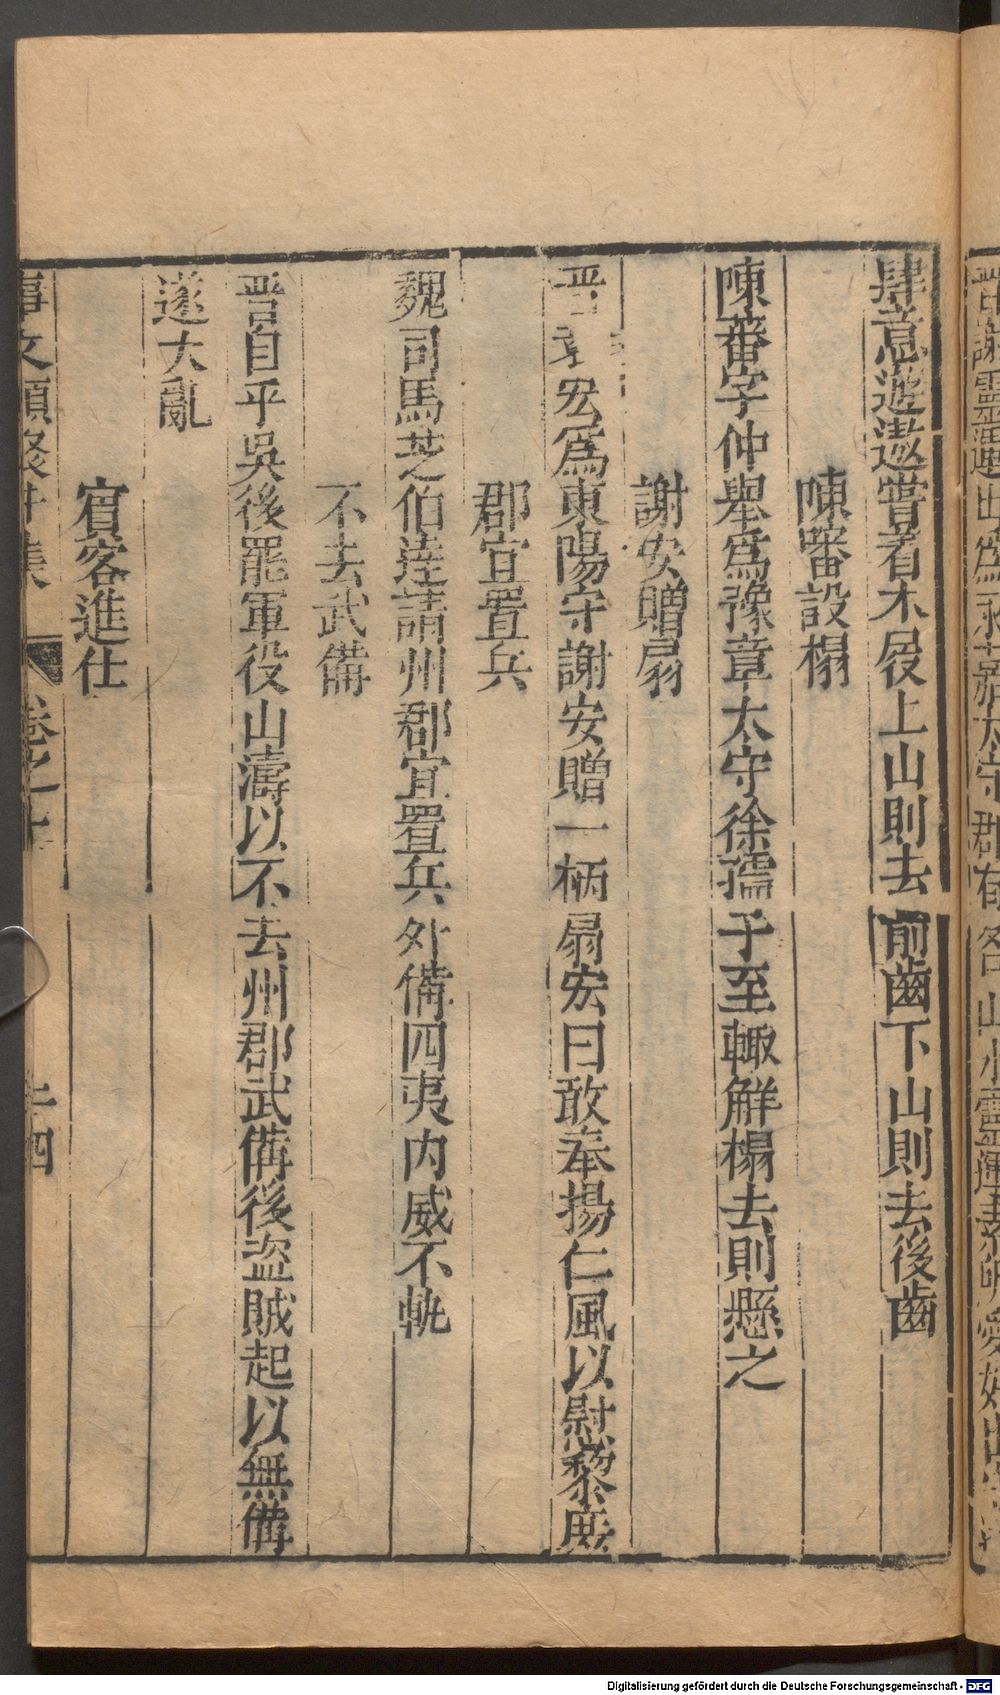 晋謝靈運出爲永嘉太守郡有名山水靈運素所愛好出守
肆意遊遨嘗着木屐上山則去前齒下山則去後齒
陳蕃設榻
陳蕃字仲舉爲豫章太守徐孺子至輙解榻去則懸之
謝安贈扇
晋袁宏爲東陽守謝安贈一柄扇宏曰敢奉揚仁風以慰黎庶
郡宜置兵
魏司馬芝伯逹請州郡宜置兵外備四夷内威不軌
不去武備
晋自平吳後罷軍役山濤以不去州郡武備後盗賊起以無備
遂大亂
賔客進仕
事文類聚外集 卷之十 二十四
Digitalisierung gefördert durch die Deutsche Forschungsgemeinschaft - DFG